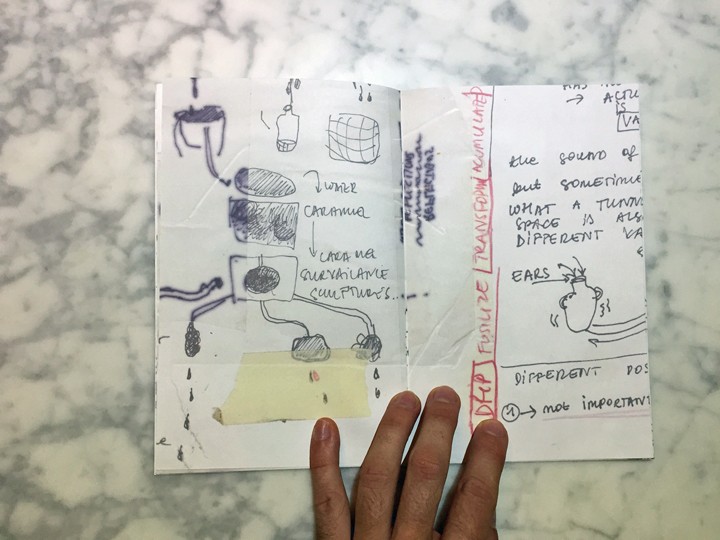 WATER
CARAMEL
CARAMEL
SURVAILANCE
SCULPTURES..
DRIP FUSILIZE TRANSFORM ACUMULATED
→ ACTU
IS
VA
the sound of
but sometime
WHAT A TUNN
SPACE IS ALS
DIFFERENT VA
EARS
DIFFERENT POS
1 → not important